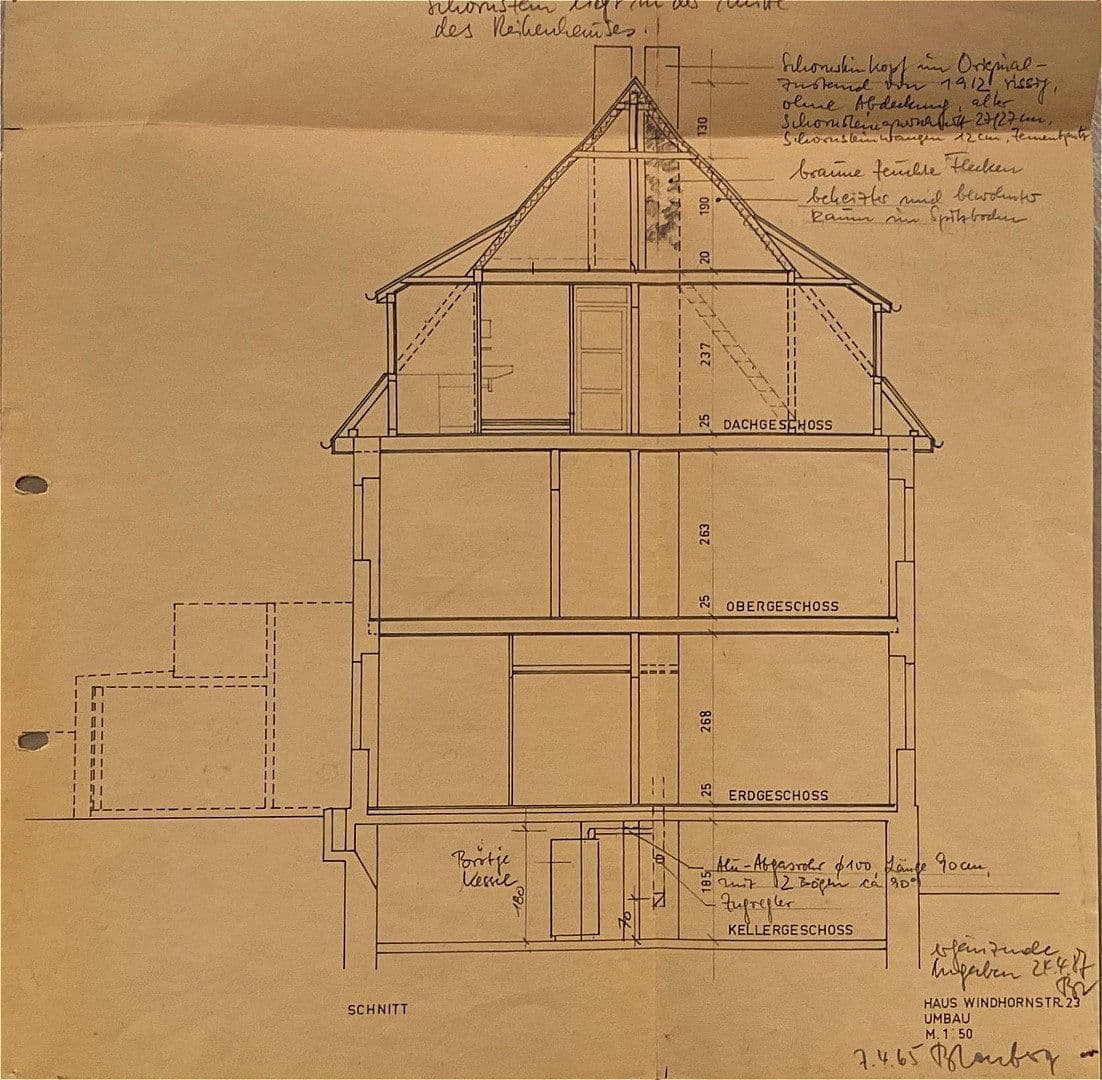 Schornstein liegt in der Mitte
des Reihenhauses.
Schornsteinkopf im Original-
zustand von 1912, rissig,
ohne Abdeckung, alter
27/27cm,
Schornsteinwangen 12cm,
130
braune feuchte Flecken
beheizter und bewohnter
Raum im Spitzboden
190
20
237
25
DACHGESCHOSS
263
25
OBERGESCHOSS
268
25
ERDGESCHOSS
Brötje
Kessel
180
Alu-Abgasrohr ϕ100, Länge 90cm,
mit 2 Bögen ca 90°
185
Zugregler
70
KELLERGESCHOSS
ergänzende
Angaben 24.4.87
SCHNITT
HAUS WINDHORNSTR. 23
UMBAU
M. 1:50
7.4.65